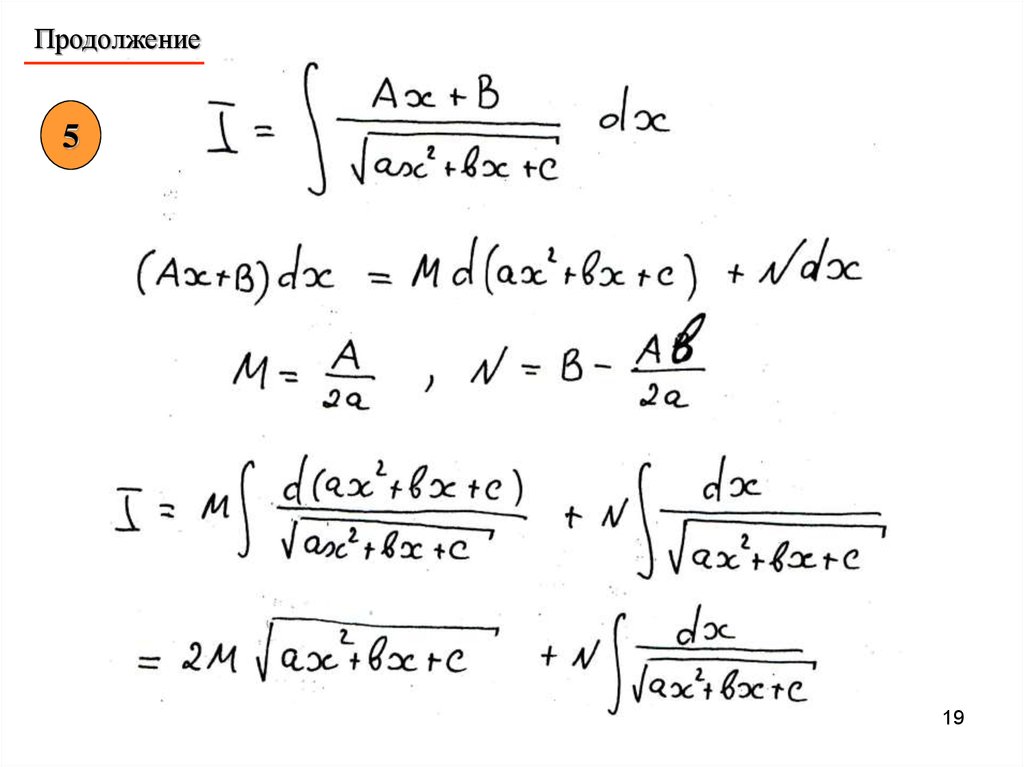 Продолжение
5
I = ∫ (Ax + B) / √(ax² + bx + c) dx
(Ax+B)dx = M d(ax²+bx+c) + N dx
M = A/2a , N = B − Ab/2a
I = M ∫ d(ax²+bx+c) / √(ax²+bx+c) + N ∫ dx / √(ax²+bx+c)
= 2M √(ax²+bx+c) + N ∫ dx / √(ax²+bx+c)
19